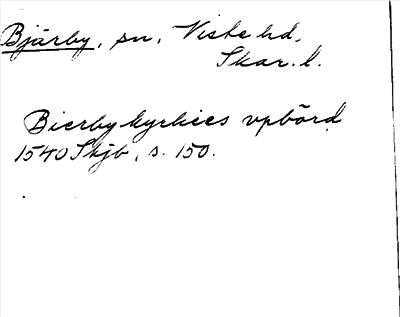 Bjärby, sn, Viste hd,
Skar. l.
Bierby kyrkies vpbörd
1540 Skjb, s. 150.